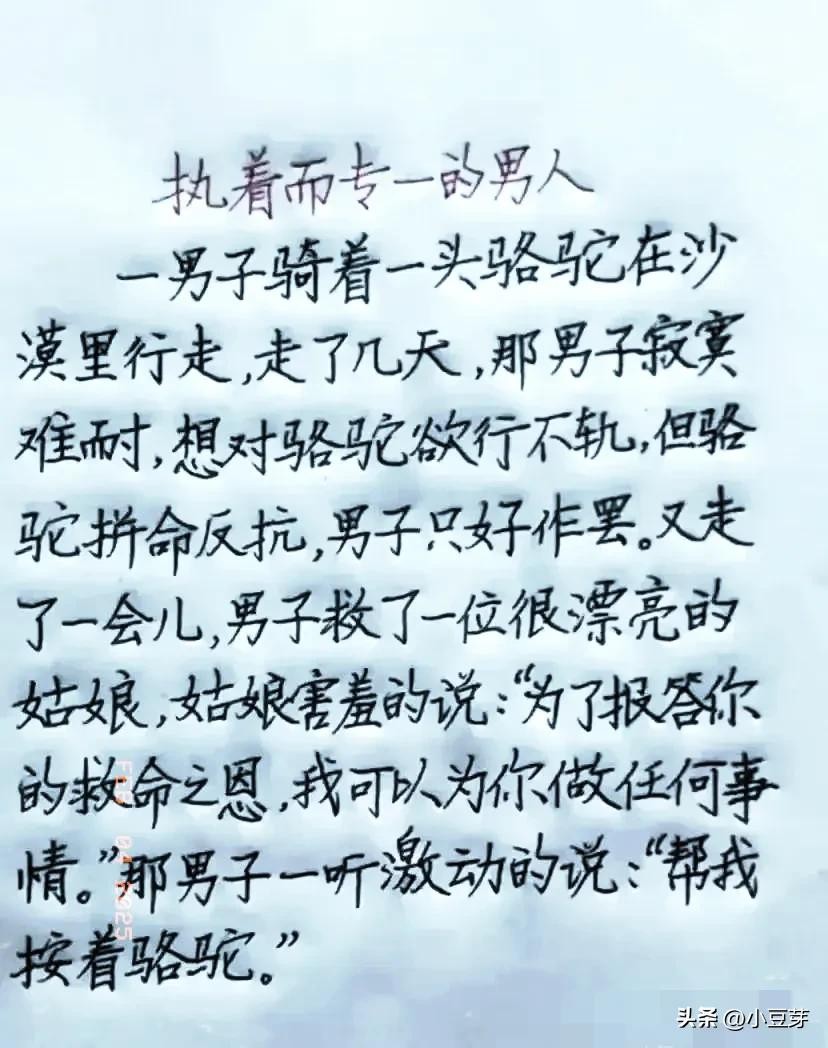 执着而专一的男人
一男子骑着一头骆驼在沙
漠里行走,走了几天,那男子寂寞
难耐,想对骆驼欲行不轨,但骆
驼拼命反抗,男子只好作罢。又走
了一会儿,男子救了一位很漂亮的
姑娘,姑娘害羞的说:“为了报答你
的救命之恩,我可以为你做任何事
情。”那男子一听激动的说:“帮我
按着骆驼。”
头条 @小豆芽